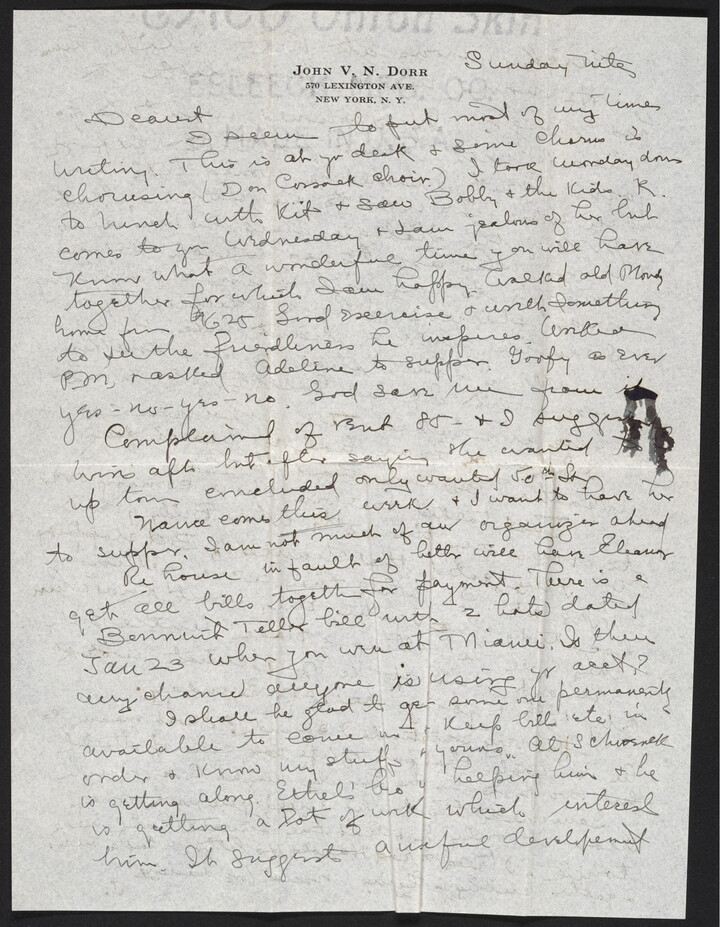 JOHN V. N. DORR
570 LEXINGTON AVE.
NEW YORK, N. Y.
Sunday nite
Dearest
I seem to put most of my times
writing. This is at yr desk & some chorus is
chorusing (Don Cossack choir) I took Monday down
to lunch with Kit & saw Bobby & the Kids. K.
comes to you Wednesday & I am jealous of her but
Know what a wonderful time you will have
together for which I am happy. Walked old
home from Good exercise & worth something
to see the friendliness he inspires. Worked
PM, & asked Adeline to supper. Goofy as ever
yes - no - yes - no. God save me from it
Complained of 85 - & I
but after saying she wanted
up town concluded only wanted 50th St
Nance comes this week & I want to have her
to supper. I am not much of an organizer ahead
Re house in fault of better will have Eleanor
get all bills together for payment. There is a
Bonwit Teller bill with 2 hats dated
Jan 23 when you were at Miami. Is there
any chance anyone is using yr acct?
I shall be glad to get some one permanently
available to come in & Keep bills etc in
order & Know my stuff & "yours". At
is getting along. Ethel's bro helping him & he
is getting a lot of work which interest
him. It suggests a useful developement